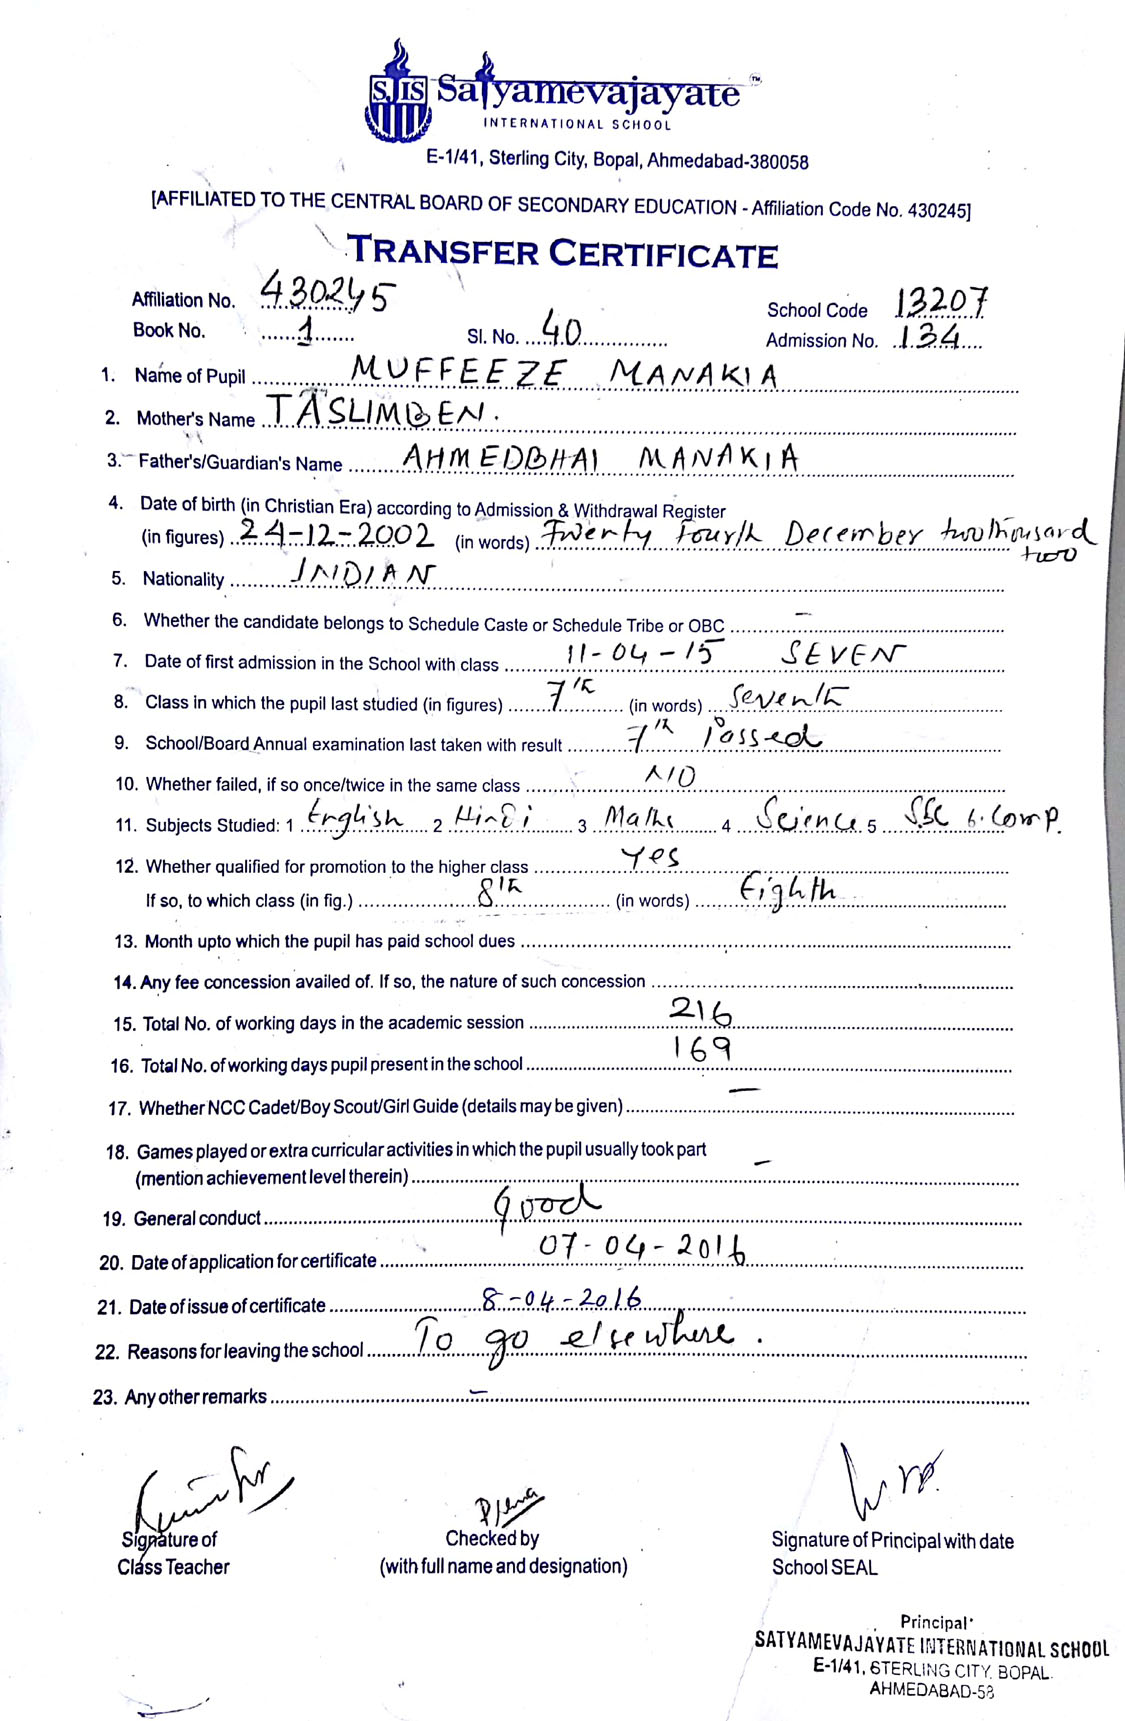 SJIS Satyamevajayate ™
INTERNATIONAL SCHOOL
E-1/41, Sterling City, Bopal, Ahmedabad-380058
[AFFILIATED TO THE CENTRAL BOARD OF SECONDARY EDUCATION - Affiliation Code No. 430245]
TRANSFER CERTIFICATE
Affiliation No. 430245 School Code 13207
Book No. 1 Sl. No. 40 Admission No. 134
1. Name of Pupil MUFFEEZE MANAKIA
2. Mother's Name TASLIMBEN.
3. Father's/Guardian's Name AHMEDBHAI MANAKIA
4. Date of birth (in Christian Era) according to Admission & Withdrawal Register
(in figures) 24-12-2002 (in words) Twenty Fourth December two thousand
two
5. Nationality INDIAN
6. Whether the candidate belongs to Schedule Caste or Schedule Tribe or OBC –
7. Date of first admission in the School with class 11-04-15 SEVEN
8. Class in which the pupil last studied (in figures) 7th (in words) Seventh
9. School/Board Annual examination last taken with result 7th Passed
10. Whether failed, if so once/twice in the same class NO
11. Subjects Studied: 1 English 2 Hindi 3 Maths 4 Science 5 S.SC 6. Comp.
12. Whether qualified for promotion to the higher class Yes
If so, to which class (in fig.) 8th (in words) Eighth
13. Month upto which the pupil has paid school dues
14. Any fee concession availed of. If so, the nature of such concession
15. Total No. of working days in the academic session 216
16. Total No. of working days pupil present in the school 169
17. Whether NCC Cadet/Boy Scout/Girl Guide (details may be given) –
18. Games played or extra curricular activities in which the pupil usually took part
(mention achievement level therein) –
19. General conduct Good
20. Date of application for certificate 07-04-2016
21. Date of issue of certificate 8-04-2016
22. Reasons for leaving the school To go elsewhere.
23. Any other remarks –
Signature of Checked by Signature of Principal with date
Class Teacher (with full name and designation) School SEAL
Principal
SATYAMEVAJAYATE INTERNATIONAL SCHOOL
E-1/41, STERLING CITY, BOPAL.
AHMEDABAD-58